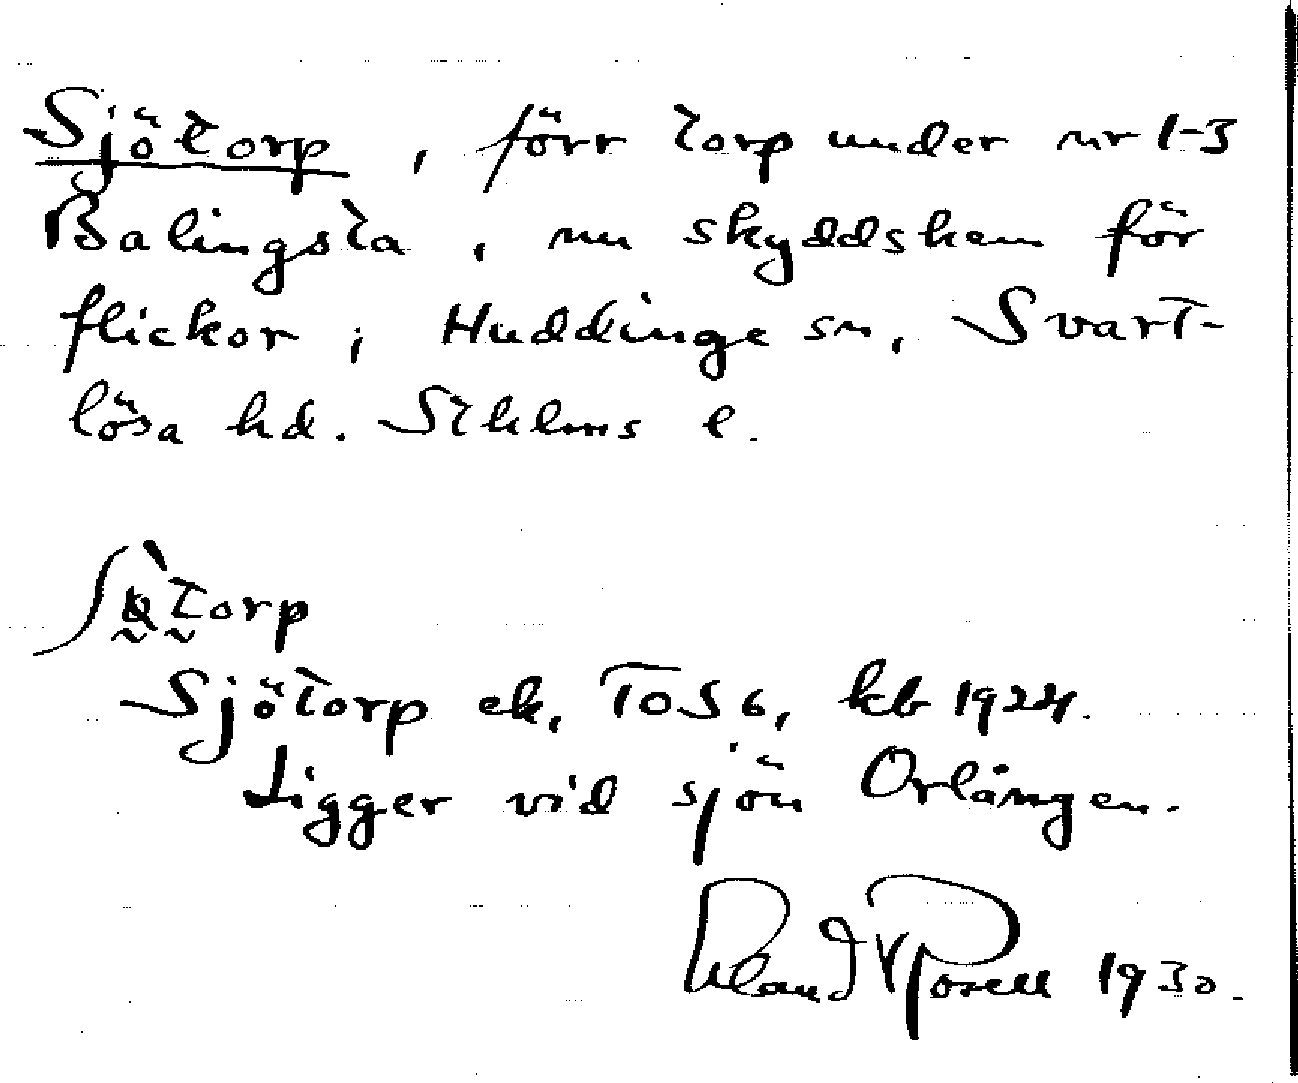 Sjötorp, förr torp under nr 1-3
Balingsta, nu skyddshem för
flickor i Huddinge sn, Svart-
lösa hd. Sthlms l.
torp
Sjötorp ek, TOS 6, kb 1924.
Ligger vid sjön Orlången.
1930.